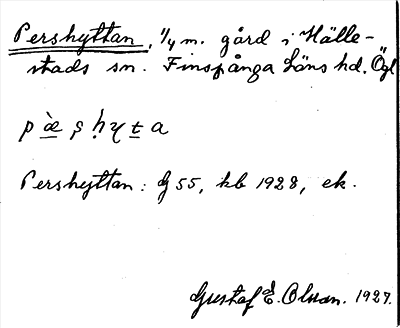 Pershyttan, 1/4 m. gård i Hälle-
stads sn. Finspånga läns hd. Ögl
Pershyttan: G 55, kb 1928, ek.
Gustaf E. Olson. 1927.